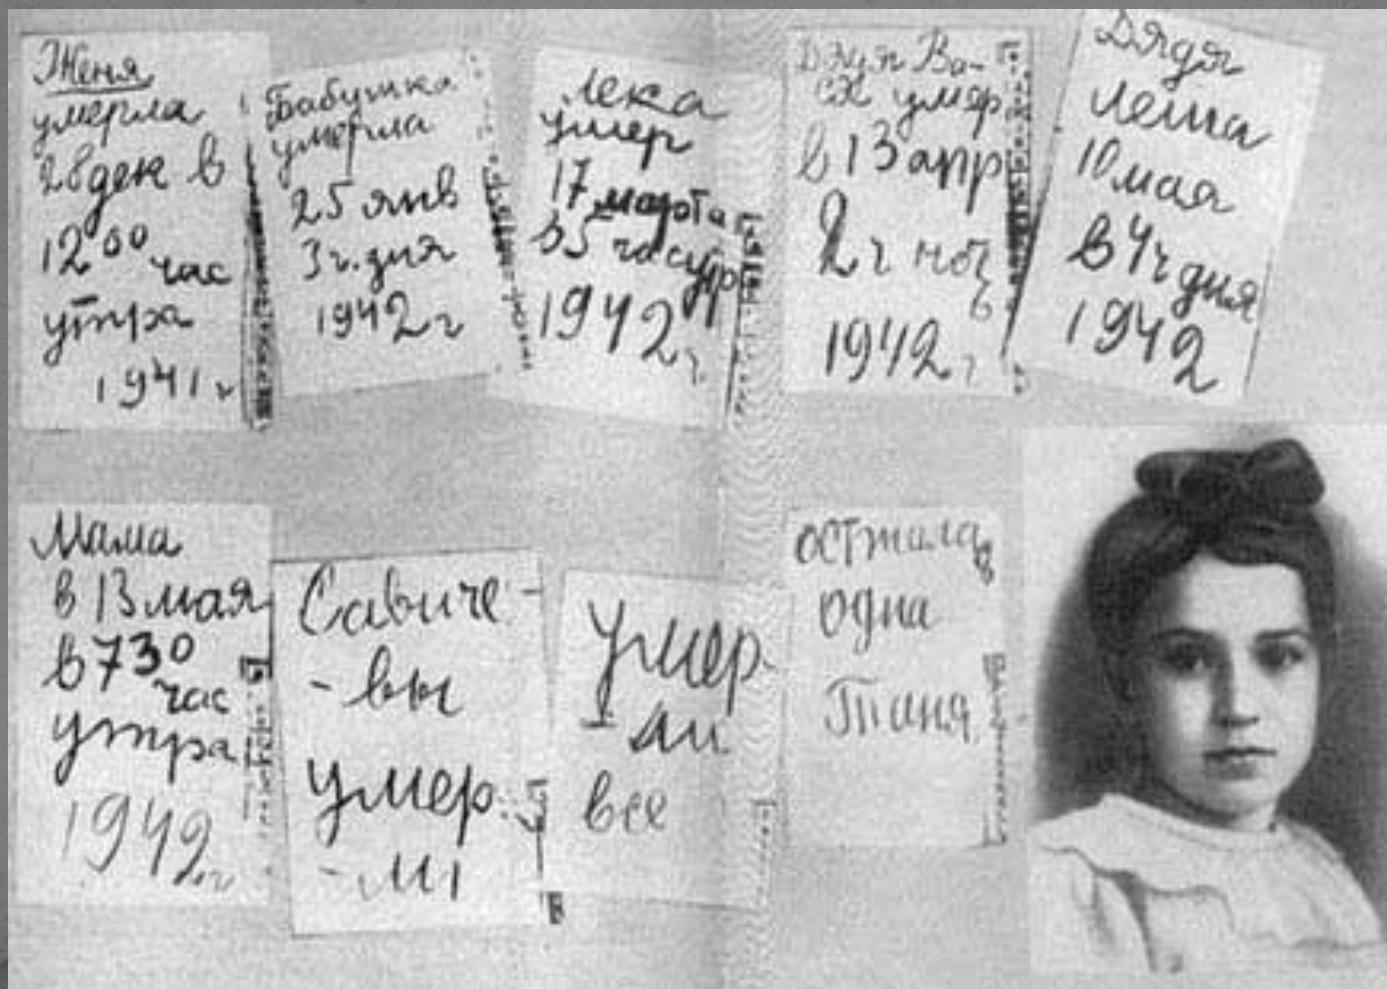 Женя
умерла
28 дек в
12 00 час
утра
1941 г
Бабушка
умерла
25 янв
3 ч. дня
1942 г
Лека
умер
17 марта
в 5 час утр
1942 г.
Дядя Ва-
ся умер
в 13 апр
2 ч ночь
1942 г
Дядя
Леша
10 мая
в 4 ч дня
1942
Мама
в 13 мая
в 7 30
час
утра
1942 г
Савиче-
-вы
умер
-ли
Умер
-ли
все
осталась
одна
Таня